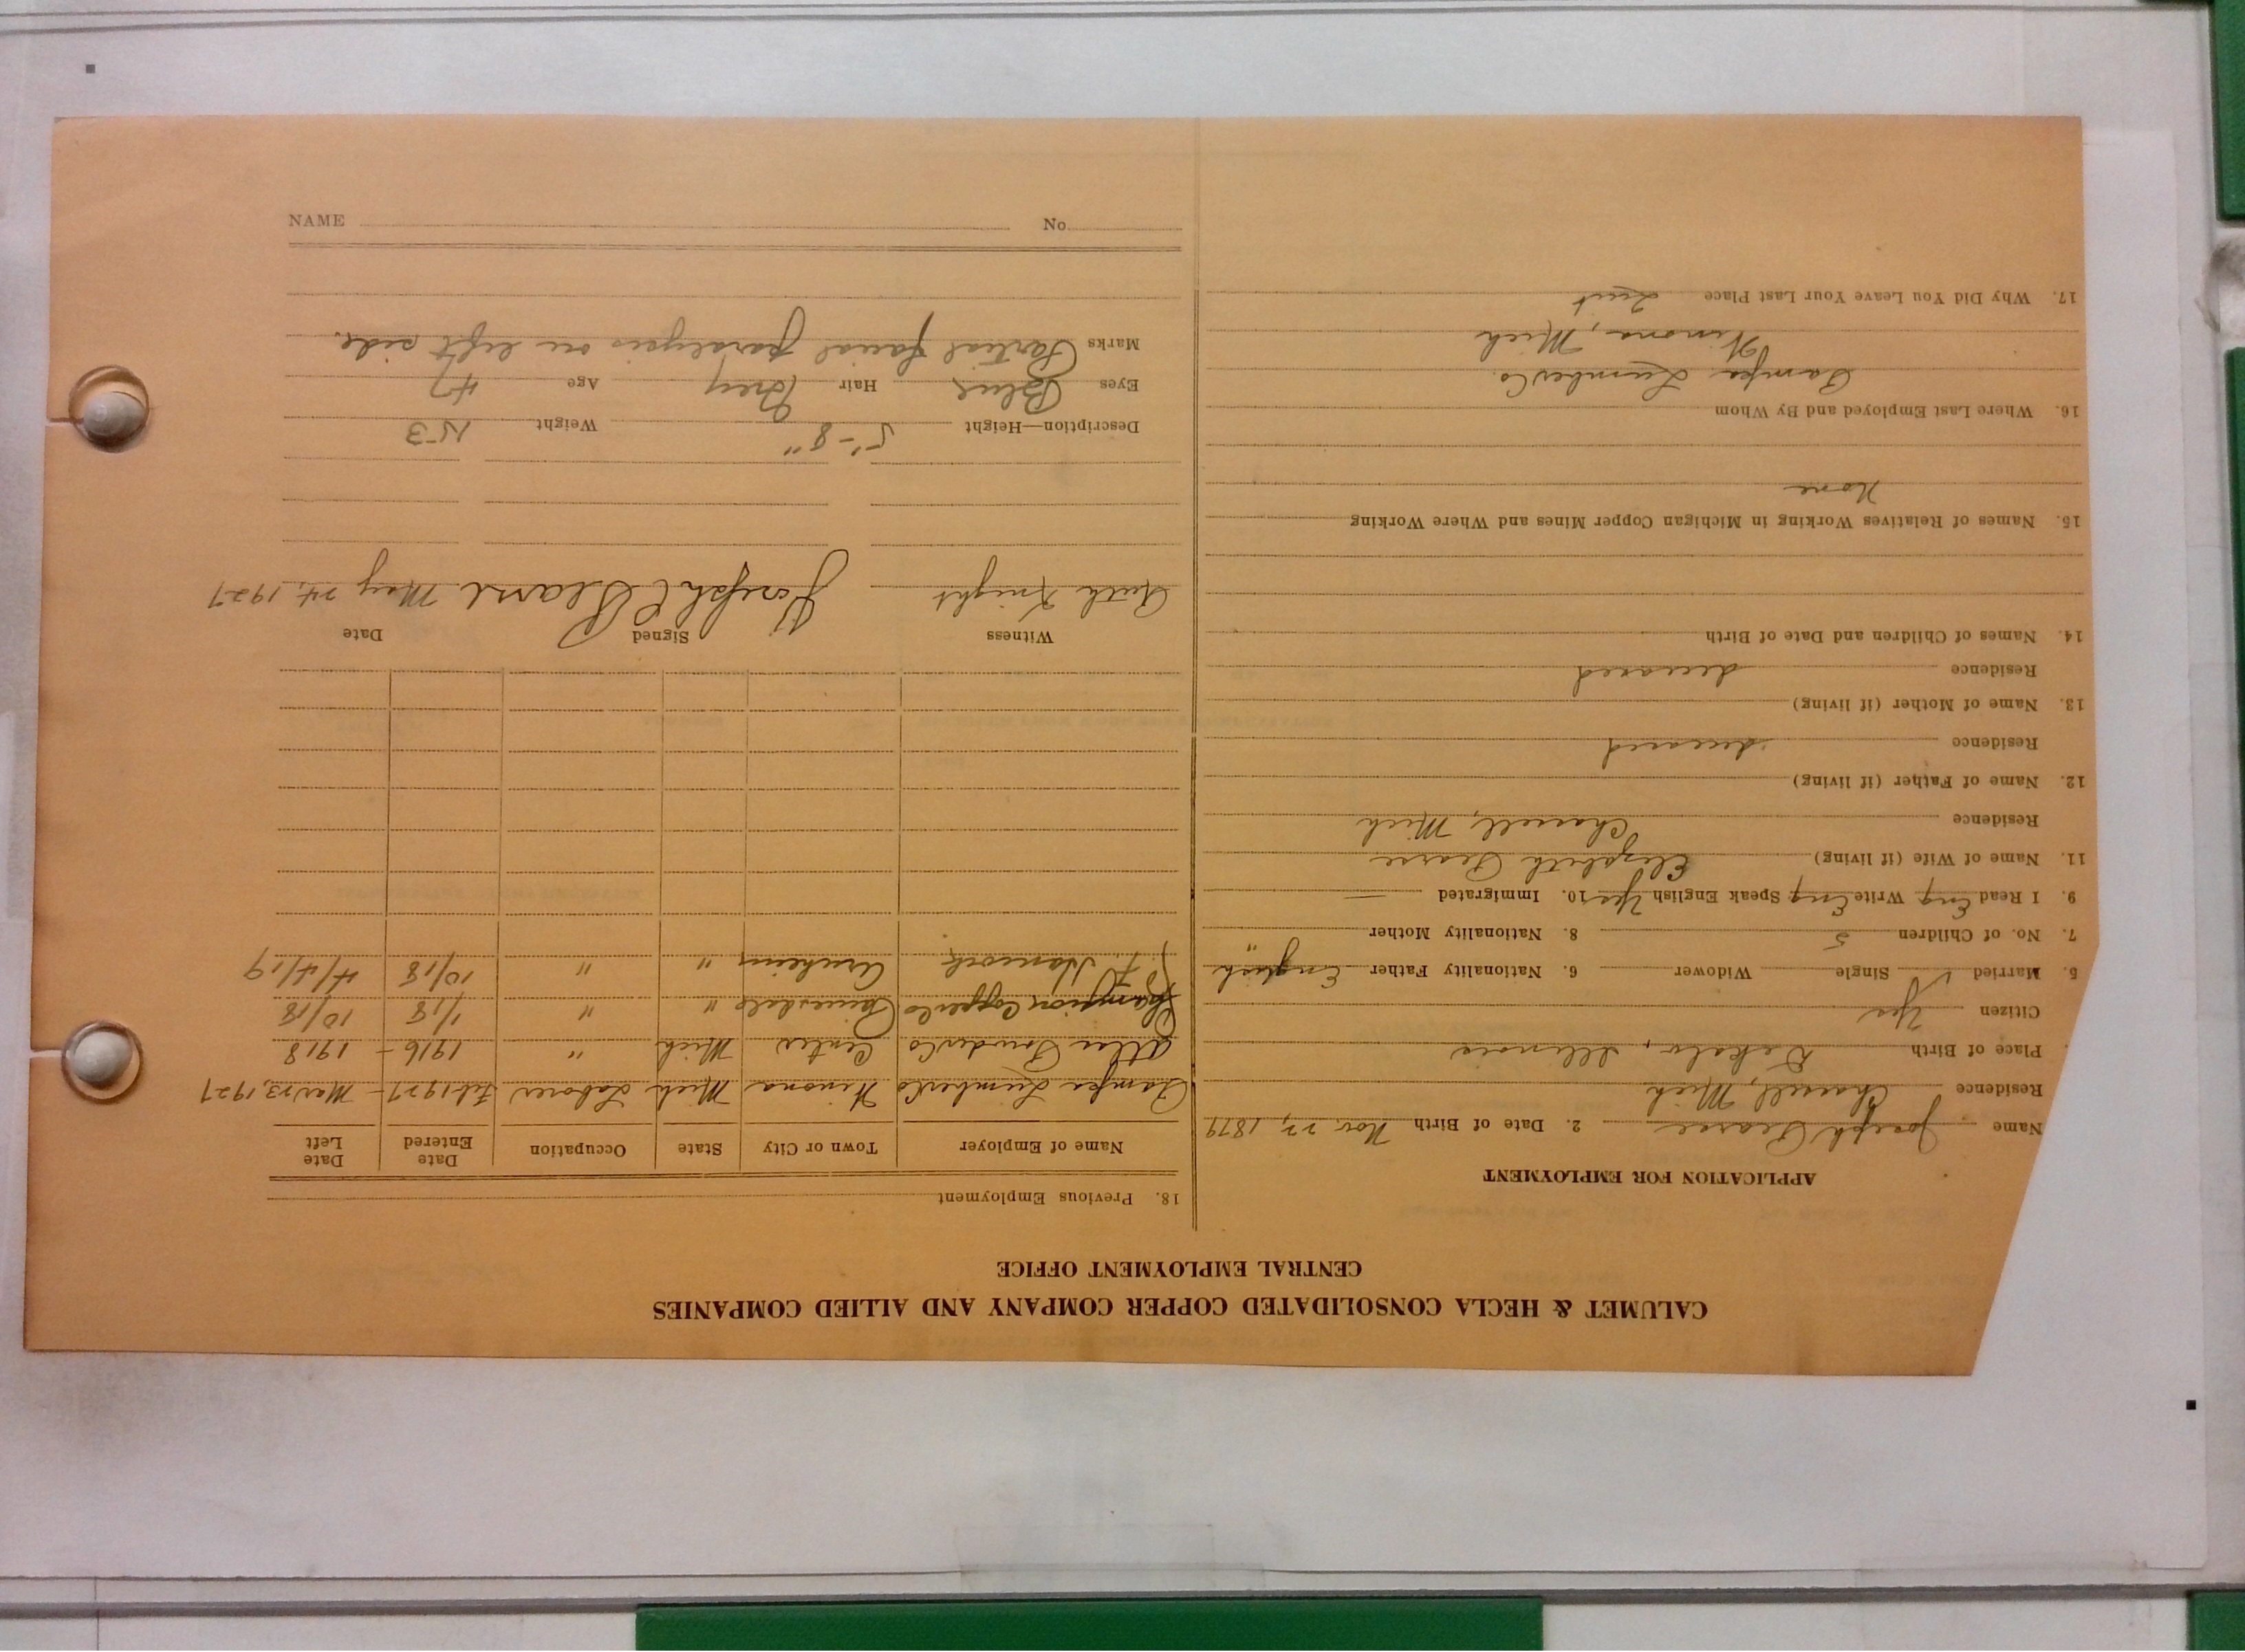 CALUMET & HECLA CONSOLIDATED COPPER COMPANY AND ALLIED COMPANIES
CENTRAL EMPLOYMENT OFFICE
APPLICATION FOR EMPLOYMENT
Name Joseph Pearce 2. Date of Birth Nov. 22, 1879
Residence Chassell, Mich
Place of Birth Dekalv, Illinois
Citizen Yes
5. Married ✓ Single Widower 6. Nationality Father English
7. No. of Children 5 8. Nationality Mother "
9. I Read Eng Write Eng Speak English Yes 10. Immigrated —
11. Name of Wife (if living) Elizabeth Pearce
Residence Chassell, Mich
12. Name of Father (if living)
Residence deceased
13. Name of Mother (if living)
Residence deceased
14. Names of Children and Date of Birth
15. Names of Relatives Working in Michigan Copper Mines and Where Working
None
16. Where Last Employed and By Whom
Lumber Co.
Winona, Mich
17. Why Did You Leave Your Last Place Quit
18. Previous Employment
Name of Employer Town or City State Occupation Date Entered Date Left
Lumber Co Winona Mich Laborer Feb 1927 - Mar 23, 1927
Atlas Powder Co Senter Mich " 1916 - 1918
Champion Copper Co Painesdale " " 1/18 10/18
Hancock Arnheim " " 10/18 4/4/19
Witness Signed Date
Ruth Knight Joseph C Pearce May 24, 1927
Description—Height 5'-8" Weight 153
Eyes Blue Hair Grey Age 47
Marks Partial facial paralysis on left side.
NAME No.